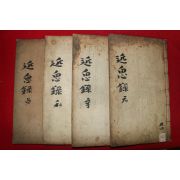 近思錄 元
近思錄 亨
近思錄 利
近思錄